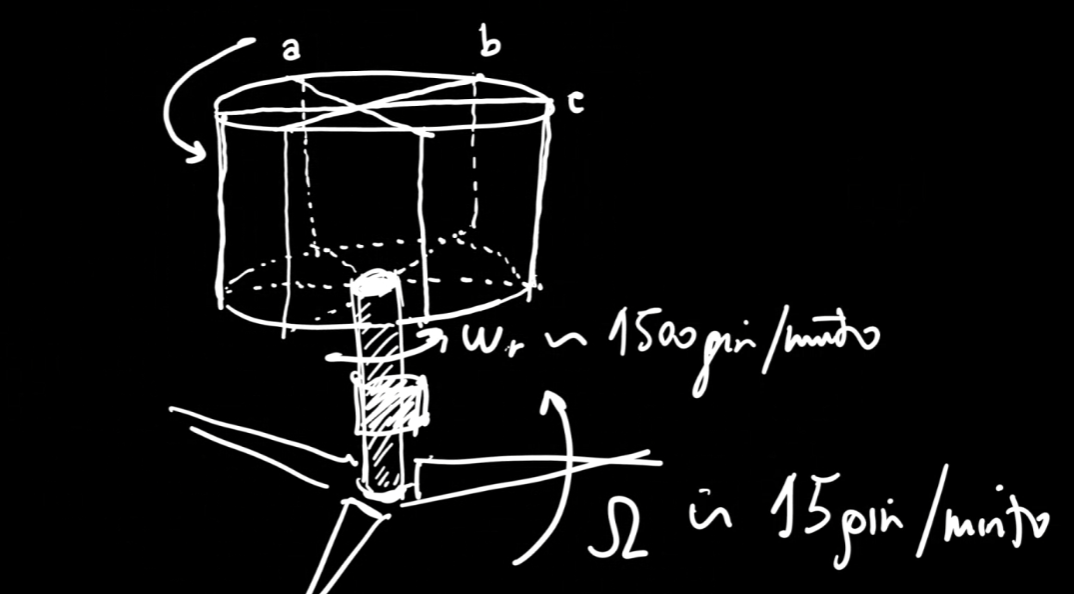 a
b
c
ωr ~ 1500 giri/minuto
Ω ~ 15 giri/minuto